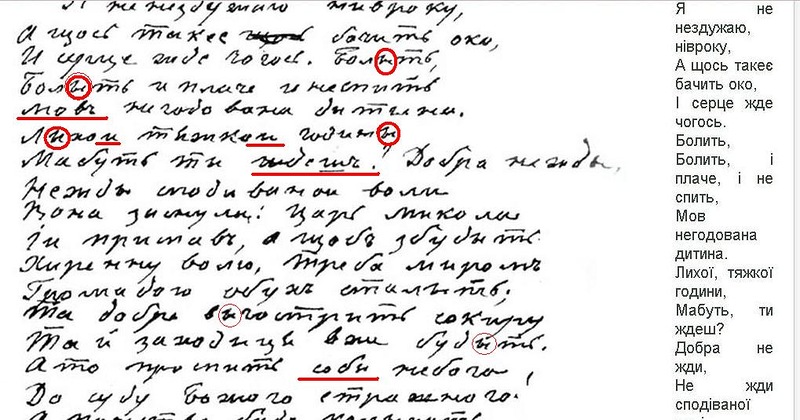 Я не нездужаю нивроку,
А щось такее бачить око,
И серце жде чогось. Болыть,
Болыть и плаче и неспить
Мовъ негодована дитина.
Лыхои тяжкои годины
Мабуть ти ждешъ? Добра нежды,
Нежды сподиванои воли
Вона заснула: Царь Микола
Іи приспавъ, а щобъ збудыть
Хиренну волю, треба миромъ
Громадою обухъ сталить;
Та добре выгострить сокиру
Та й заходиця вже будыть.
А то проспить соби небога
До суду Божого страшного!
Я не
нездужаю,
нівроку,
А щось такеє
бачить око,
І серце жде
чогось.
Болить,
Болить, і
плаче, і не
спить,
Мов
негодована
дитина.
Лихої, тяжкої
години,
Мабуть, ти
ждеш?
Добра не
жди,
Не жди
сподіваної